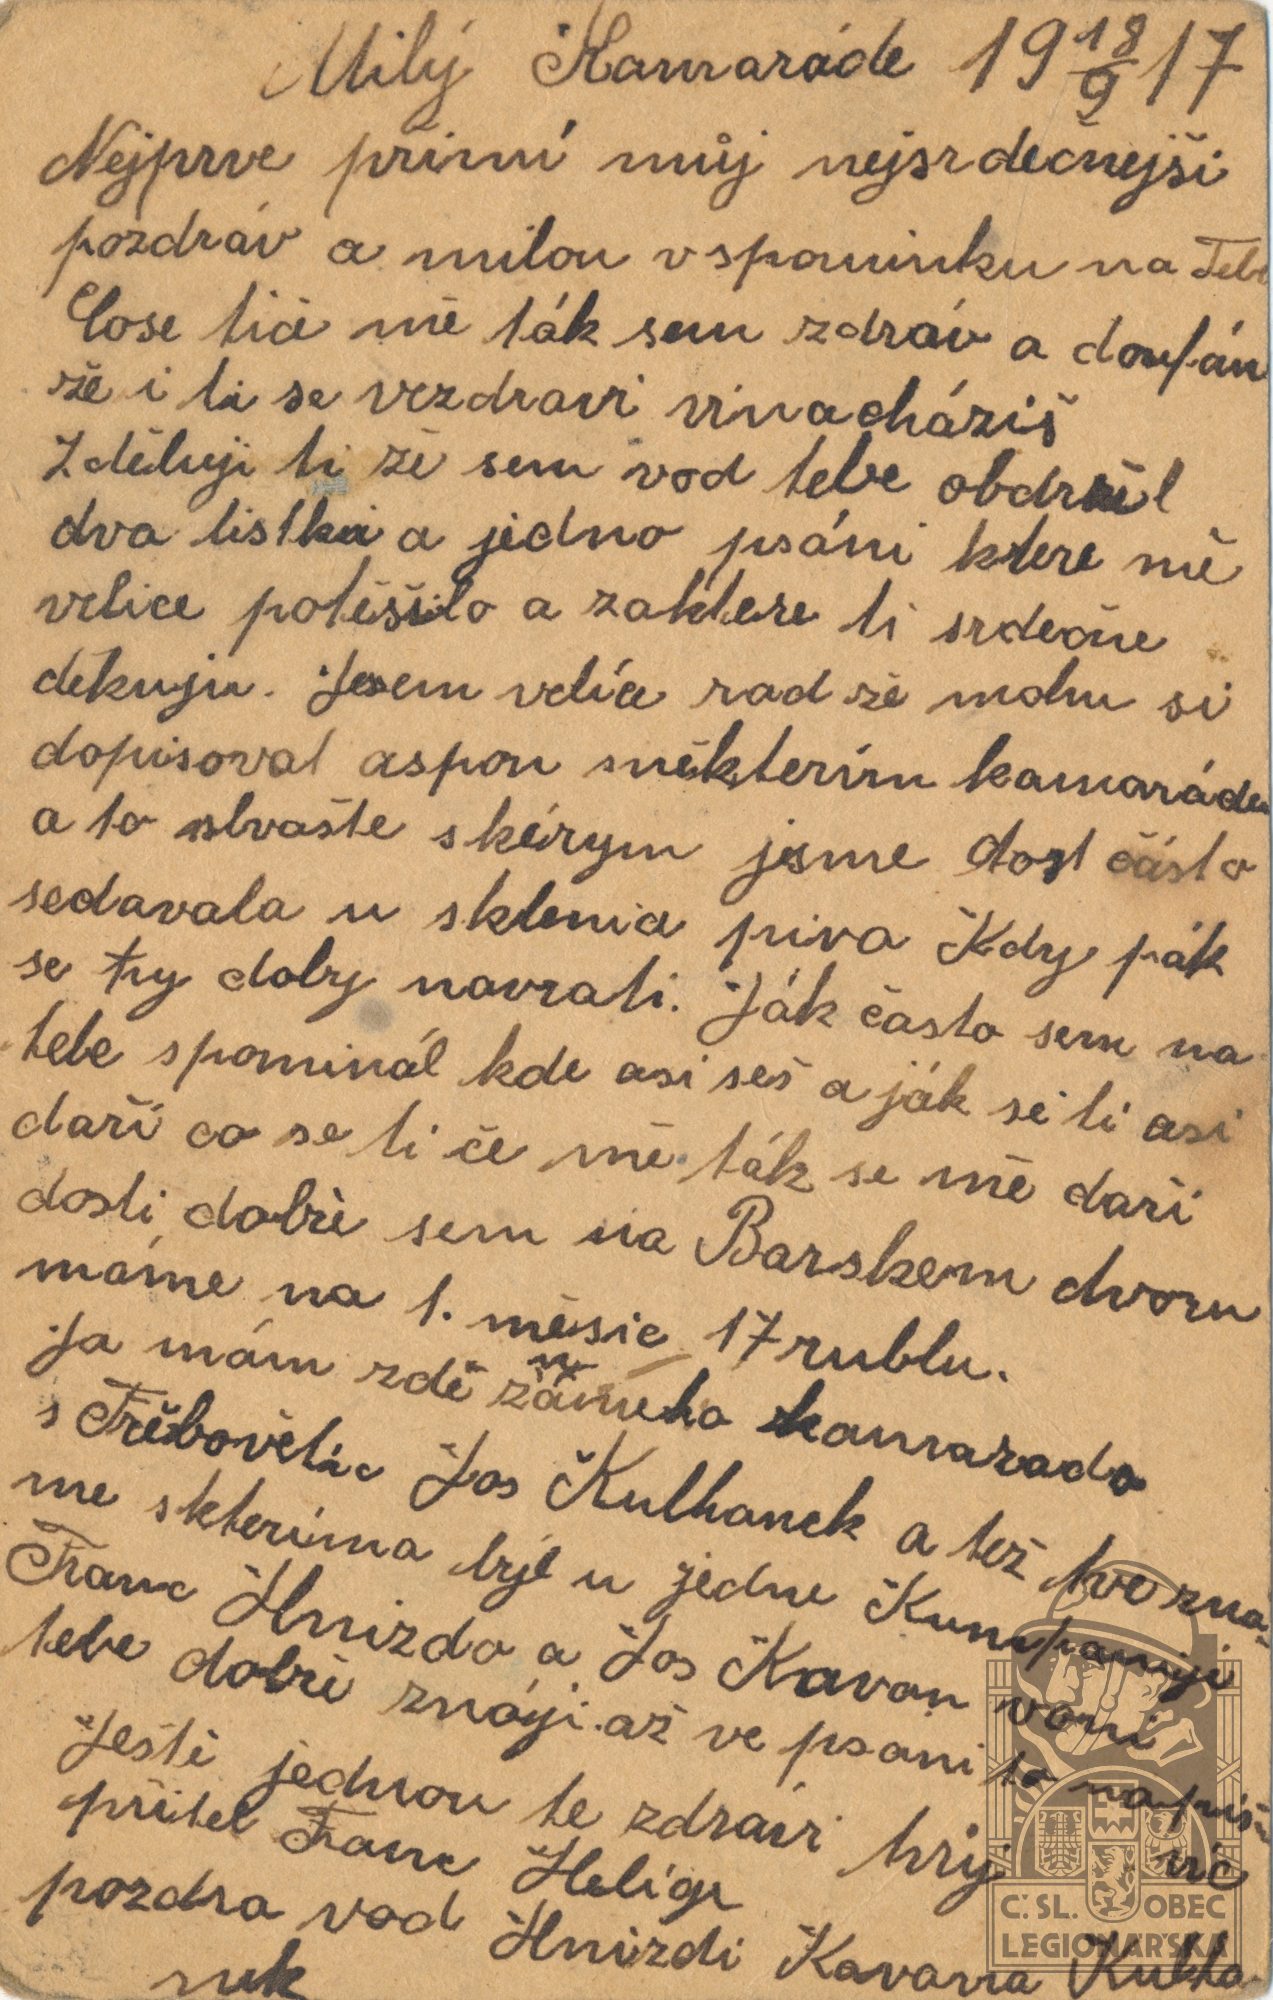 Milý Kamaráde 19 18/9 17
Nejprve přimi můj nejsrdečnejši
pozdráv a milou vspominku na Tebe
Cose tiče mě ták sem zdráv a doufán
že i ti se vezdravi vinacháziš
Zděluji ti že sem vod tebe obdržel
dva listki a jedno psáni ktere mě
velice potěšilo a zaktere ti srdečne
dekuju. Jesem velice rad že mohu si
dopisovat aspon sněkterím kamaráden
a to zlvašte skérym jsme dost často
sedavala u sklenia piva Kdy pák
se ty doby navrati. Ják často sem na
tebe spominál kde asi seš a ják se ti asi
daří co se ti če mě ták se mě daři
dosti dobře sem na Barskem dvoru
máme na 1. měsic 17 rublu.
Ja mám zdě známeho kamarada
s Třebovětic Jos Kulhanek a tež tve zná-
me skterima byl u jedne Kumpaniji
Franc Hnizdo a Jos Kavan voni
tebe dobře znáji až ve psani to napiš
Ješte jednou te zdravi tvij
přitel Franc Heligr vic
pozdra vod Hnizdi Kavana Kulha
nek
Č. SL. OBEC
LEGIONÁŘSKÁ